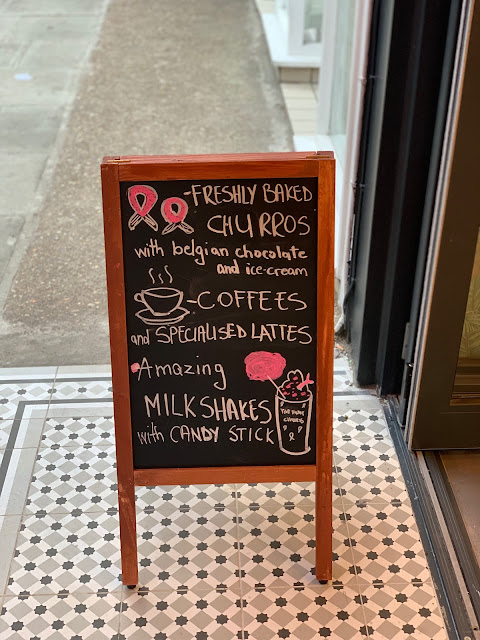 -FRESHLY BAKED
CHURROS
with belgian chocolate
and ice-cream
-COFFEES
and SPECIALISED LATTES
Amazing
MILKSHAKES
with CANDY STICK